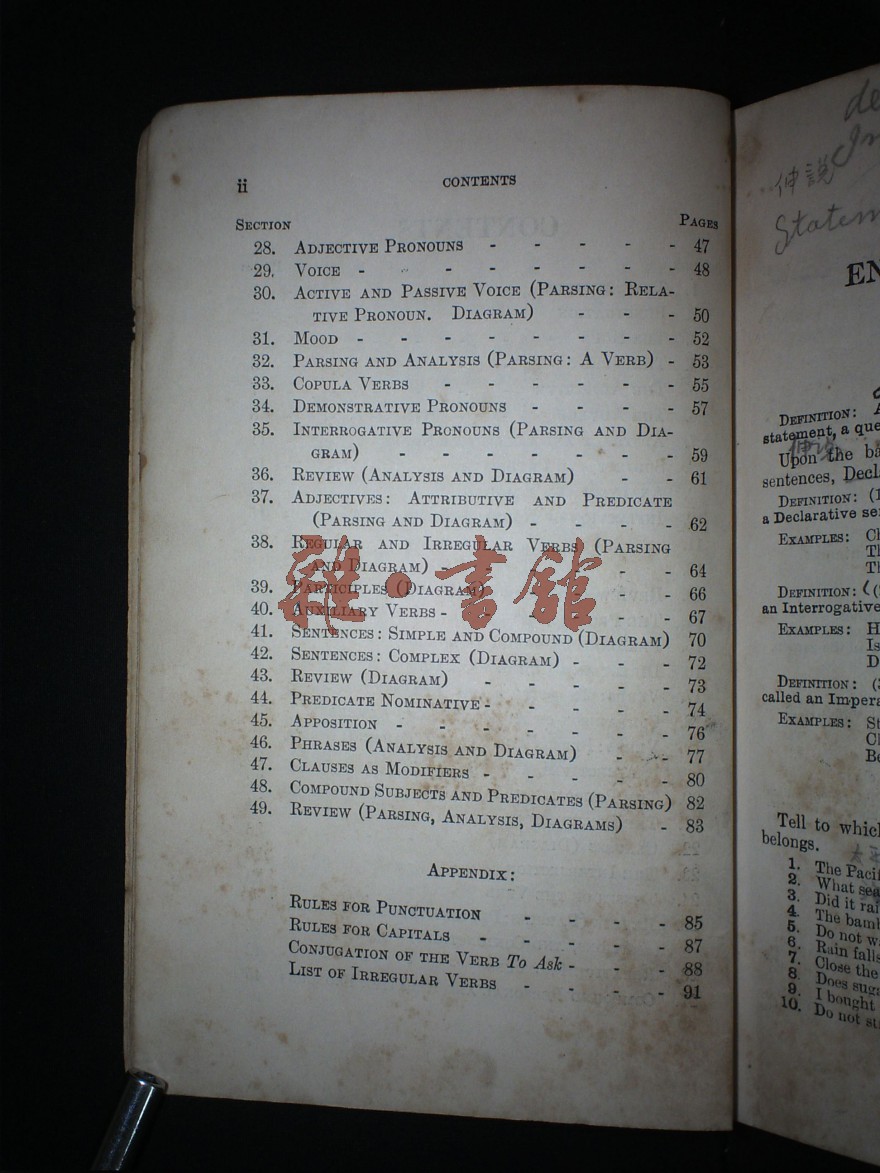 ii CONTENTS
SECTION PAGES
28. ADJECTIVE PRONOUNS - - - - - 47
29. VOICE - - - - - - - - 48
30. ACTIVE AND PASSIVE VOICE (PARSING: RELA-
TIVE PRONOUN. DIAGRAM) - - - 50
31. MOOD - - - - - - - - 52
32. PARSING AND ANALYSIS (PARSING: A VERB) - 53
33. COPULA VERBS - - - - - - 55
34. DEMONSTRATIVE PRONOUNS - - - - 57
35. INTERROGATIVE PRONOUNS (PARSING AND DIA-
GRAM) - - - - - - - 59
36. REVIEW (ANALYSIS AND DIAGRAM) - - 61
37. ADJECTIVES: ATTRIBUTIVE AND PREDICATE
(PARSING AND DIAGRAM) - - - - 62
38. REGULAR AND IRREGULAR VERBS (PARSING
AND DIAGRAM) - - - - - - 64
39. PARTICIPLES (DIAGRAM) - - - - 66
40. AUXILIARY VERBS - - - - - - 67
41. SENTENCES: SIMPLE AND COMPOUND (DIAGRAM) 70
42. SENTENCES: COMPLEX (DIAGRAM) - - - 72
43. REVIEW (DIAGRAM) - - - - - 73
44. PREDICATE NOMINATIVE - - - - - 74
45. APPOSITION - - - - - - 76
46. PHRASES (ANALYSIS AND DIAGRAM) - - - 77
47. CLAUSES AS MODIFIERS - - - - - 80
48. COMPOUND SUBJECTS AND PREDICATES (PARSING) 82
49. REVIEW (PARSING, ANALYSIS, DIAGRAMS) - 83
APPENDIX:
RULES FOR PUNCTUATION - - - - 85
RULES FOR CAPITALS - - - - - 87
CONJUGATION OF THE VERB To Ask - - - 88
LIST OF IRREGULAR VERBS - - - - 91
雜·書舘
Statem
EN
DEFINITION: A
statement, a que
Upon the ba
sentences, Decl
DEFINITION: (1
a Declarative se
EXAMPLES: Cl
Th
Th
DEFINITION: (
an Interrogative
EXAMPLES: H
Is
D
DEFINITION: (3
called an Impera
EXAMPLES: St
Cl
Be
Tell to which
belongs.
1. The Pacif
2. What sea
3. Did it rai
4. The bamb
5. Do not w
6. Rain falls
7. Close the
8. Does suga
9. I bought
10. Do not st